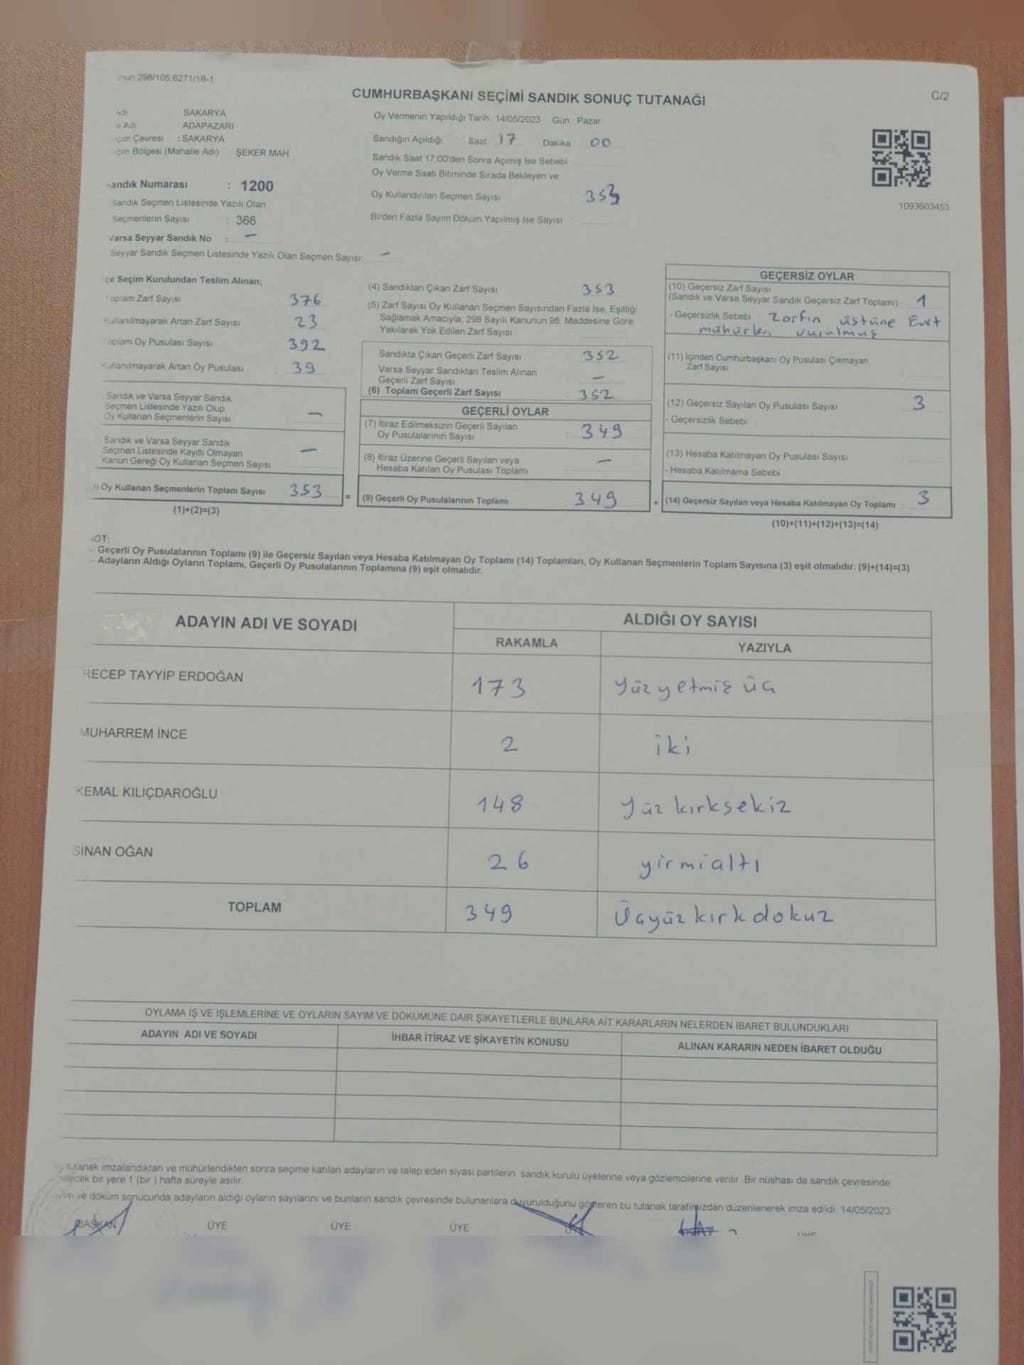 298/105,6271/18-1
C/2
CUMHURBAŞKANI SEÇİMİ SANDIK SONUÇ TUTANAĞI
SAKARYA
Adı ADAPAZARI
Çevresi : SAKARYA
Bölgesi (Mahalle Adı) ŞEKER MAH
andık Numarası : 1200
Sandık Seçmen Listesinde Yazılı Olan
Seçmenlerin Sayısı : 366
Varsa Seyyar Sandık No : -
Seyyar Sandık Seçmen Listesinde Yazılı Olan Seçmen Sayısı: -
Oy Vermenin Yapıldığı Tarih: 14/05/2023 Gün : Pazar
Sandığın Açıldığı Saat 17 Dakika 00
Sandık Saat 17:00'den Sonra Açmış İse Sebebi
Oy Verme Saati Bitiminde Sırada Bekleyen ve
Oy Kullandırılan Seçmen Sayısı 353
Birden Fazla Sayım Döküm Yapılmış İse Sayısı
1093603453
çe Seçim Kurulundan Teslim Alınan;
Toplam Zarf Sayısı 376
Kullanılmayarak Artan Zarf Sayısı 23
Toplam Oy Pusulası Sayısı 392
Kullanılmayarak Artan Oy Pusulası 39
Sandık ve Varsa Seyyar Sandık
Seçmen Listesinde Yazılı Olup
Oy Kullanan Seçmenlerin Sayısı -
Sandık ve Varsa Seyyar Sandık
Seçmen Listesinde Kayıtlı Olmayan
Kanun Gereği Oy Kullanan Seçmen Sayısı -
Oy Kullanan Seçmenlerin Toplam Sayısı 353
(1)+(2)=(3)
(4) Sandıktan Çıkan Zarf Sayısı 353
(5) Zarf Sayısı Oy Kullanan Seçmen Sayısından Fazla İse, Eşitliği
Sağlamak Amacıyla, 298 Sayılı Kanunun 98. Maddesine Göre
Yakılarak Yok Edilen Zarf Sayısı
Sandıkta Çıkan Geçerli Zarf Sayısı 352
Varsa Seyyar Sandıktan Teslim Alınan
Geçerli Zarf Sayısı -
(6) Toplam Geçerli Zarf Sayısı 352
GEÇERLİ OYLAR
(7) İtiraz Edilmeksizin Geçerli Sayılan
Oy Pusulalarının Sayısı 349
(8) İtiraz Üzerine Geçerli Sayılan veya
Hesaba Katılan Oy Pusulası Toplamı -
= (9) Geçerli Oy Pusulalarının Toplamı 349 +
GEÇERSİZ OYLAR
(10) Geçersiz Zarf Sayısı
(Sandık ve Varsa Seyyar Sandık Geçersiz Zarf Toplamı) 1
- Geçersizlik Sebebi Zarfın üstüne Evet
mühürleri vurulmuş
(11) İçinden Cumhurbaşkanı Oy Pusulası Çıkmayan
Zarf Sayısı
(12) Geçersiz Sayılan Oy Pusulası Sayısı 3
- Geçersizlik Sebebi
(13) Hesaba Katılmayan Oy Pusulası Sayısı
- Hesaba Katılmama Sebebi
(14) Geçersiz Sayılan veya Hesaba Katılmayan Oy Toplamı 3
(10)+(11)+(12)+(13)=(14)
NOT:
- Geçerli Oy Pusulalarının Toplamı (9) ile Geçersiz Sayılan veya Hesaba Katılmayan Oy Toplamı (14) Toplamları, Oy Kullanan Seçmenlerin Toplam Sayısına (3) eşit olmalıdır. (9)+(14)=(3)
- Adayların Aldığı Oyların Toplamı, Geçerli Oy Pusulalarının Toplamına (9) eşit olmalıdır.
ADAYIN ADI VE SOYADI ALDIĞI OY SAYISI
RAKAMLA YAZIYLA
RECEP TAYYİP ERDOĞAN 173 Yüzyetmiş üç
MUHARREM İNCE 2 iki
KEMAL KILIÇDAROĞLU 148 Yüz kırksekiz
SİNAN OĞAN 26 yirmialtı
TOPLAM 349 Üçyüz kırk dokuz
OYLAMA İŞ VE İŞLEMLERİNE VE OYLARIN SAYIM VE DÖKÜMÜNE DAİR ŞİKAYETLERLE BUNLARA AİT KARARLARIN NELERDEN İBARET BULUNDUKLARI
ADAYIN ADI VE SOYADI İHBAR İTİRAZ VE ŞİKAYETİN KONUSU ALINAN KARARIN NEDEN İBARET OLDUĞU
tutanak imzalandıktan ve mühürlendikten sonra seçime katılan adayların ve talep eden siyasi partilerin sandık kurulu üyelerine veya gözlemcilerine verilir. Bir nüshası da sandık çevresinde
bir yere 1 (bir ) hafta süreyle asılır.
ve döküm sonucunda adayların aldığı oyların sayılarını ve bunların sandık çevresinde bulunanlara duyurulduğunu gösteren bu tutanak tarafımızdan düzenlenerek imza edildi. 14/05/2023
BAŞKAN ÜYE ÜYE ÜYE ÜYE